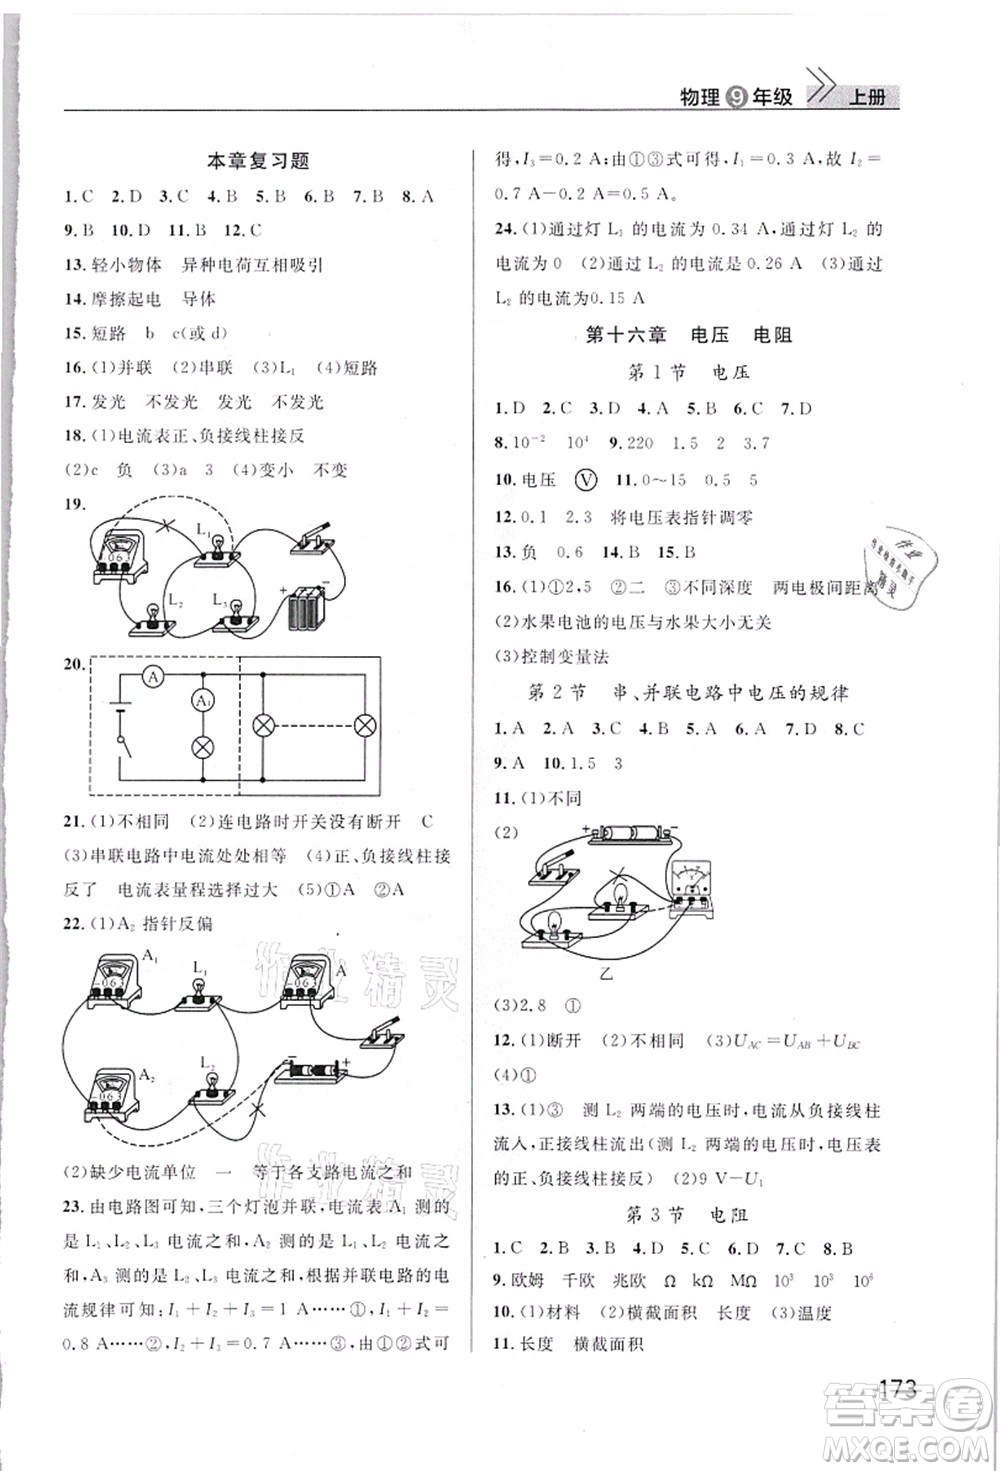 物理9年级 上册
本章复习题
1.C 2.D 3.C 4.B 5.B 6.B 7.B 8.A
9.B 10.D 11.B 12.C
13.轻小物体 异种电荷互相吸引
14.摩擦起电 导体
15.短路 b c(或 d)
16.(1)并联 (2)串联 (3)L₁ (4)短路
17.发光 不发光 发光 不发光
18.(1)电流表正、负接线柱接反
(2)c 负 (3)a 3 (4)变小 不变
19.
L₁
L₂
L₃
20.
A
A₁
21.(1)不相同 (2)连电路时开关没有断开 C
(3)串联电路中电流处处相等 (4)正、负接线柱接
反了 电流表量程选择过大 (5)①A ②A
22.(1)A₂ 指针反偏
A₁
L₁
A
L₂
A₂
(2)缺少电流单位 一 等于各支路电流之和
23.由电路图可知,三个灯泡并联,电流表 A₁ 测的
是 L₁、L₂、L₃ 电流之和,A₂ 测的是 L₂、L₃ 电流之
和,A₃ 测的是 L₃ 电流之和,根据并联电路的电
流规律可知:I₁+I₂+I₃=1 A……①,I₁+I₂=
0.8 A……②,I₁+I₃=0.7 A……③,由①②式可
得,I₃=0.2 A;由①③式可得,I₁=0.3 A,故 I₂=
0.7 A-0.2 A=0.5 A。
24.(1)通过灯 L₁ 的电流为 0.34 A,通过灯 L₂ 的
电流为0 (2)通过 L₂ 的电流是 0.26 A (3)通过
L₂ 的电流为0.15 A
第十六章 电压 电阻
第1节 电压
1.D 2.C 3.D 4.A 5.B 6.C 7.D
8.10⁻² 10⁴ 9.220 1.5 2 3.7
10.电压 V 11.0~15 0.5 5
12.0.1 2.3 将电压表指针调零
13.负 0.6 14.B 15.B
16.(1)①2,5 ②二 ③不同深度 两电极间距离
(2)水果电池的电压与水果大小无关
(3)控制变量法
第2节 串、并联电路中电压的规律
1.A 2.A 3.C 4.B 5.A 6.A 7.D 8.C
9.A 10.1.5 3
11.(1)不同
(2)
乙
(3)2.8 ①
12.(1)断开 (2)不相同 (3)U_AC=U_AB+U_BC
(4)①
13.(1)③ 测 L₂ 两端的电压时,电流从负接线柱
流入,正接线柱流出(测 L₂ 两端的电压时,电压表
的正、负接线柱接反) (2)9 V-U₁
第3节 电阻
1.C 2.B 3.C 4.D 5.B 6.C 7.C 8.B
9.欧姆 千欧 兆欧 Ω kΩ MΩ 10³ 10³ 10⁶
10.(1)材料 (2)横截面积 长度 (3)温度
11.长度 横截面积
173
作业精灵
作业精灵
答案卷
MXQE.COM